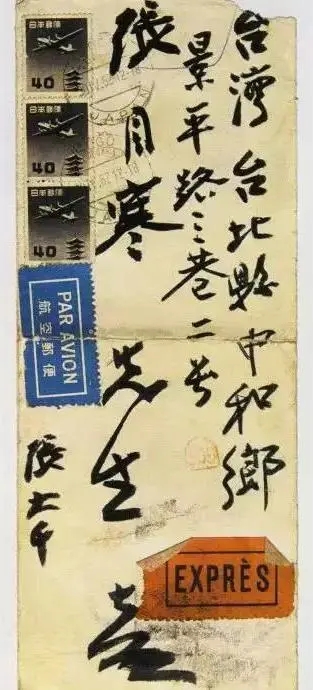 台灣 台北縣 中和鄉
景平路三巷二号
張目寒 先生 台啓
張大千
日本郵便
40
日本郵便
40
日本郵便
40
PAR AVION
航空郵便
EXPRÈS